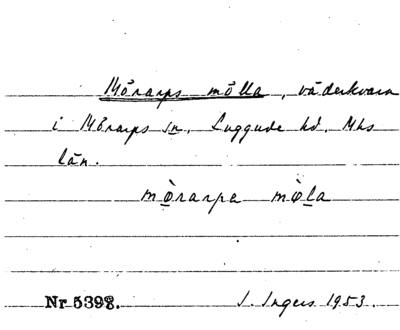 Mörarps mölla, väderkvarn
i Mörarps sn, Luggude hd, Mhs
län.
mò̱rarpa mø̱̀la
Nr 5398. I. Ingers 1953.